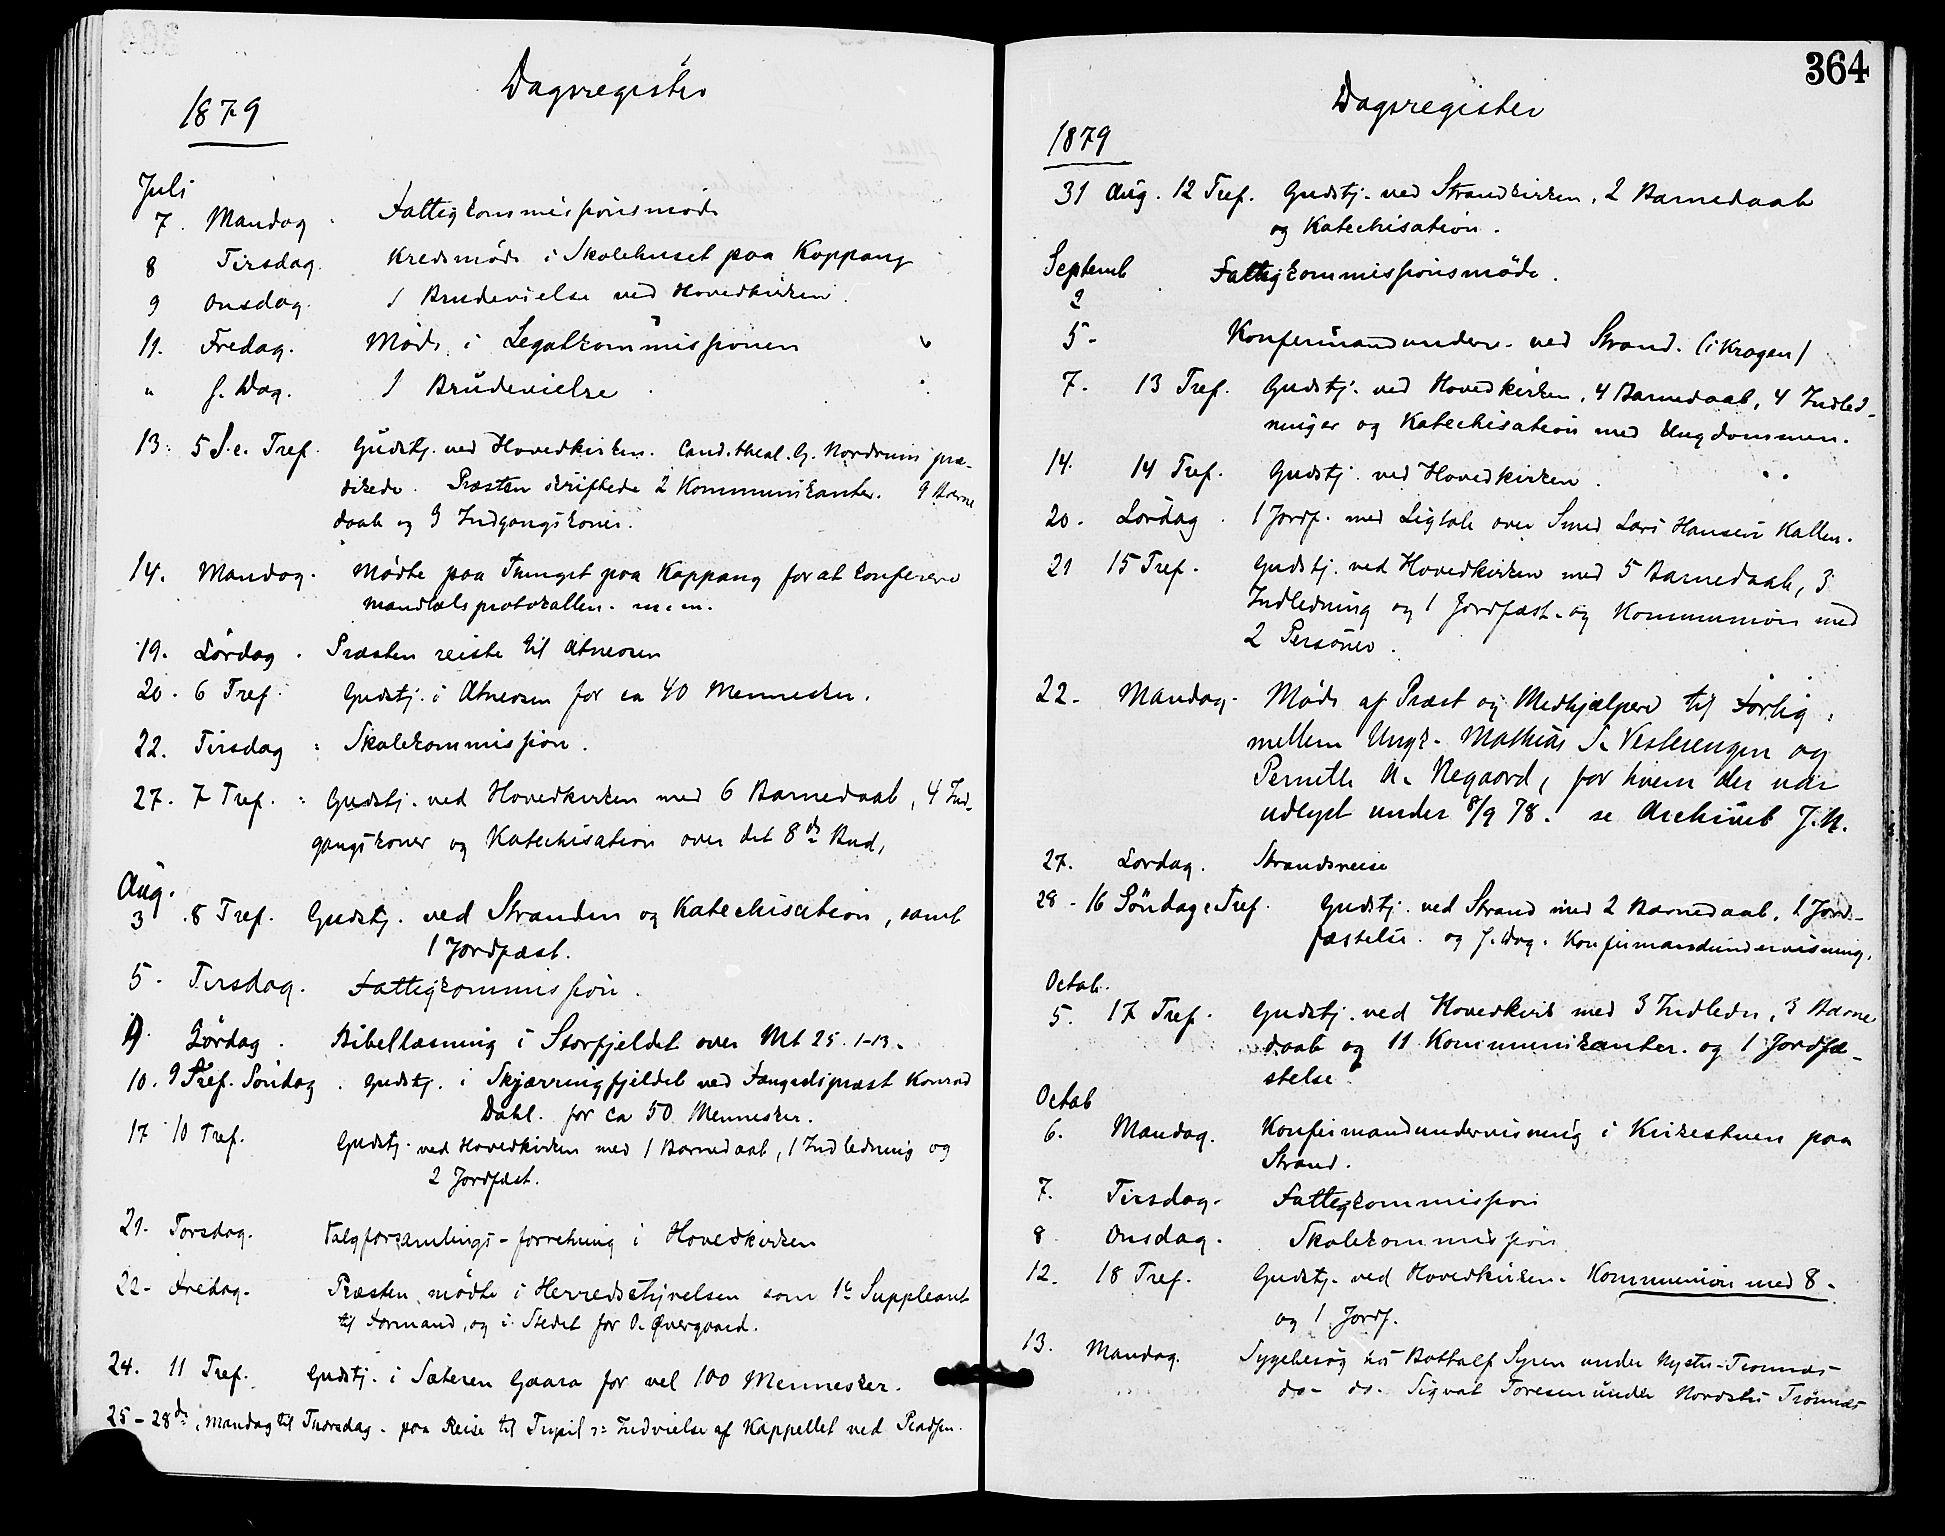 Dagsregister
1879
Juli
7. Mandag. Fattigkommissionsmøde
8 Tirsdag. Kredsmøde i Skolehuset paa Koppang
9 Onsdag. 1 Brudevielse ved Hovedkirken.
11. Fredag. Møde i Legatkommissionen
" s. Dag. 1 Brudevielse
13. 5 S. e. Tref. Gudstj. ved Hovedkirken. Cand. theol. G. Nordrum præ-
dikede. Præsten skriftede 2 Kommunikanter. 9 Barne
daab og 9 Indgangskoner.
14. Mandag. Mødte paa Thinget paa Koppang for at conferere
mandtalsprotokollen. m.m.
19. Lørdag. Præsten reiste til Atneosen
20. 6 Tref. Gudstj. i Atneosen for ca 40 Mennesker.
22. Tirsdag: Skolekommission.
27. 7 Tref. Gudstj. ved Hovedkirken med 6 Barnedaab, 4 Ind-
gangskoner og Katechisation over det 8de Bud,
Aug.
3 8 Tref. Gudstj. ved Stranden og Katechisation, samt
1 Jordfæst.
5. Tirsdag. Fattigkommission.
9. Lørdag. Bibellæsning i Storfjeldet over Mt 25. 1-13.
10. 9 Tref. Søndag. Gudstj. i Skjærringfjeldet ved Fængselspræst Konrad
Dahl. for ca 50 Mennesker.
17 10 Tref. Gudstj. ved Hovedkirken med 1 Barnedaab, 1 Indledning og
2 Jordfæst.
21. Torsdag. Valgforsamlings-forretning i Hovedkirken
22- Fredag. Præsten mødte i Herredsstyrelsen som 1ste Suppleant
til Formand, og i Stedet for O. Øvergaard.
24. 11 Tref. Gudstj. i Sæteren Gaara for vel 100 Mennesker.
25-28de, Mandag til Thorsdag. paa Reise til Trysil ɔ: Indvielse af Kappellet ved
364
Dagsregister
1879
31 Aug. 12 Tref. Gudstj. ved Strandkirken, 2 Barnedaab
og Katechisation.
Septemb
2 Fattigkommissionsmøde.
5- Konfirmandunderv. ved Strand. (i Krogen)
7. 13 Tref. Gudstj. ved Hovedkirken, 4 Barnedaab, 4 Indled-
ninger og Katechisation med Ungdommen.
14. 14 Tref. Gudstj. ved Hovedkirken.
20. Lørdag. 1 Jordf. med Ligtale over Smed Lars Hansen Kallen.
21 15 Tref. Gudstj. ved Hovedkirken med 5 Barnedaab, 3
Indledning og 1 Jordfæst. og Kommunion med
2 Personer.
22- Mandag- Møde af Præst og Medhjælpere til Forlig
mellem Ungk. Mathias S. Vesterengen og
Pernille N. Negaard, for hvem der var
udlyst under 8/9 78. se Archivet J.N.
27. Lørdag. Strandsreise
28- 16 Søndag e Tref. Gudstj. ved Strand med 2 Barnedaab, 1 Jord-
fæstelse. og s. Dag. Konfirmandundervisning.
Octob.
5. 17 Tref. Gudstj. ved Hovedkirk med 3 Indledn, 3 Barne
daab og 11 Kommunikanter. og 1 Jordfæ-
stelse.
Octob
6. Mandag. Konfirmandundervisning i Kirkestuen paa
Strand.
7. Tirsdag. Fattigkommission
8 Onsdag. Skolekommission
12. 18 Tref. Gudstj. ved Hovedkirken. Kommunion med 8-
og 1 Jordf.
13. Mandag. Sygebesøg hos Bottolf Syren under Nystu-Trønnæs-
do- do. Sigvat Toresen under Nordstu Trønnæs